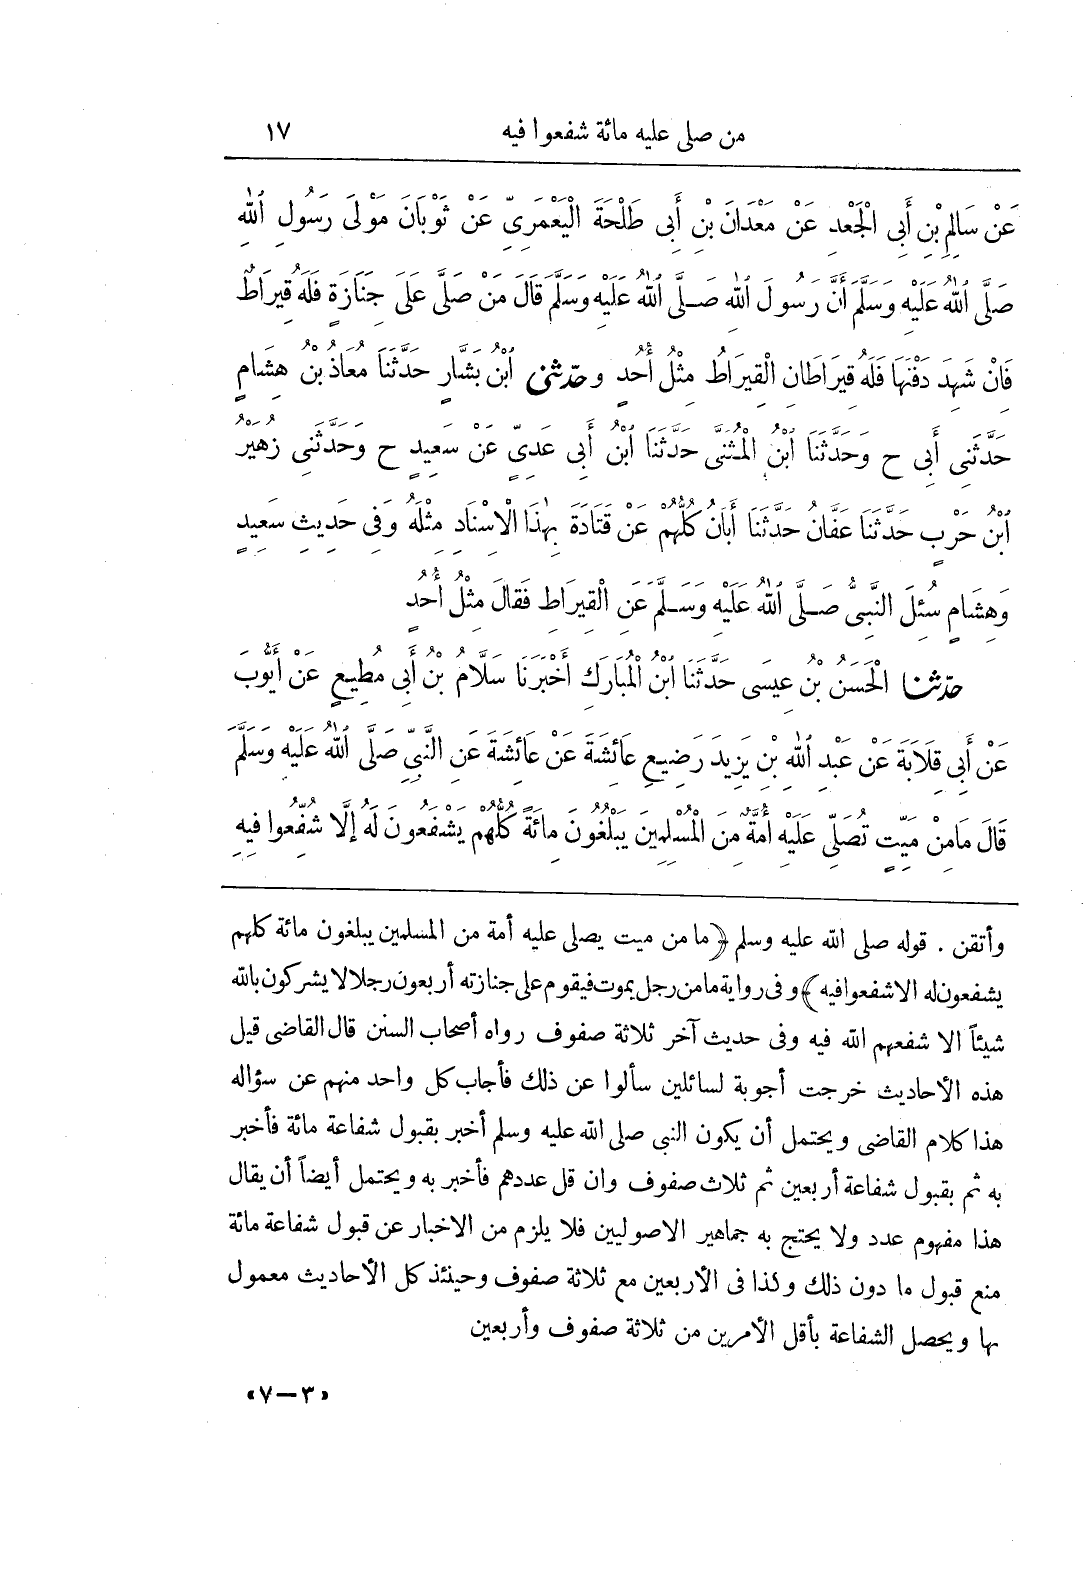 من صلى عليه مائة شفعوا فيه ١٧
عَنْ سَالِمِ بْنِ أَبِى الْجَعْدِ عَنْ مَعْدَانَ بْنِ أَبِى طَلْحَةَ الْيَعْمَرِيِّ عَنْ ثَوْبَانَ مَوْلَى رَسُولِ اللهِ
صَلَّى اللهُ عَلَيْهِ وَسَلَّمَ أَنَّ رَسُولَ اللهِ صَلَّى اللهُ عَلَيْهِ وَسَلَّمَ قَالَ مَنْ صَلَّى عَلَى جَنَازَةٍ فَلَهُ قِيرَاطٌ
فَانْ شَهِدَ دَفْنَهَا فَلَهُ قِيرَاطَانِ الْقِيرَاطُ مِثْلُ أُحُدٍ وحَدَّثَنِى ابْنُ بَشَّارٍ حَدَّثَنَا مُعَاذُ بْنُ هِشَامٍ
حَدَّثَنِى أَبِى ح وَحَدَّثَنَا ابْنُ الْمُثَنَّى حَدَّثَنَا ابْنُ أَبِى عَدِيٍّ عَنْ سَعِيدٍ ح وَحَدَّثَنِى زُهَيْرُ
ابْنُ حَرْبٍ حَدَّثَنَا عَفَّانُ حَدَّثَنَا أَبَانُ كُلُّهُمْ عَنْ قَتَادَةَ بِهٰذَا الْاسْنَادِ مِثْلَهُ وَفِى حَدِيثِ سَعِيدٍ
وَهِشَامٍ سُئِلَ النَّبِىُّ صَلَّى اللهُ عَلَيْهِ وَسَلَّمَ عَنِ الْقِيرَاطِ فَقَالَ مِثْلُ أُحُدٍ
حَدَّثَنَا الْحَسَنُ بْنُ عِيسَى حَدَّثَنَا ابْنُ الْمُبَارَكِ أَخْبَرَنَا سَلَّامُ بْنُ أَبِى مُطِيعٍ عَنْ أَيُّوبَ
عَنْ أَبِى قِلَابَةَ عَنْ عَبْدِ اللهِ بْنِ يَزِيدَ رَضِيعِ عَائِشَةَ عَنْ عَائِشَةَ عَنِ النَّبِيِّ صَلَّى اللهُ عَلَيْهِ وَسَلَّمَ
قَالَ مَامِنْ مَيِّتٍ تُصَلِّى عَلَيْهِ أُمَّةٌ مِنَ الْمُسْلِمِينَ يَبْلُغُونَ مِائَةً كُلُّهُمْ يَشْفَعُونَ لَهُ إِلَّا شُفِّعُوا فِيهِ
وأتقن . قوله صلى الله عليه وسلم ﴿ما من ميت يصلى عليه أمة من المسلمين يبلغون مائة كلهم
يشفعون له الا شفعوا فيه﴾ وفى رواية مامن رجل يموت فيقوم على جنازته أربعون رجلا لا يشركون بالله
شيئاً الا شفعهم الله فيه وفى حديث آخر ثلاثة صفوف رواه أصحاب السنن قال القاضى قيل
هذه الأحاديث خرجت أجوبة لسائلين سألوا عن ذلك فأجاب كل واحد منهم عن سؤاله
هذا كلام القاضى ويحتمل أن يكون النبى صلى الله عليه وسلم أخبر بقبول شفاعة مائة فأخبر
به ثم بقبول شفاعة أربعين ثم ثلاث صفوف وان قل عددهم فأخبر به ويحتمل أيضاً أن يقال
هذا مفهوم عدد ولا يحتج به جماهير الاصوليين فلا يلزم من الاخبار عن قبول شفاعة مائة
منع قبول ما دون ذلك وكذا فى الأربعين مع ثلاثة صفوف وحينئذ كل الأحاديث معمول
بها ويحصل الشفاعة بأقل الأمرين من ثلاثة صفوف وأربعين
«٣ — ٧»